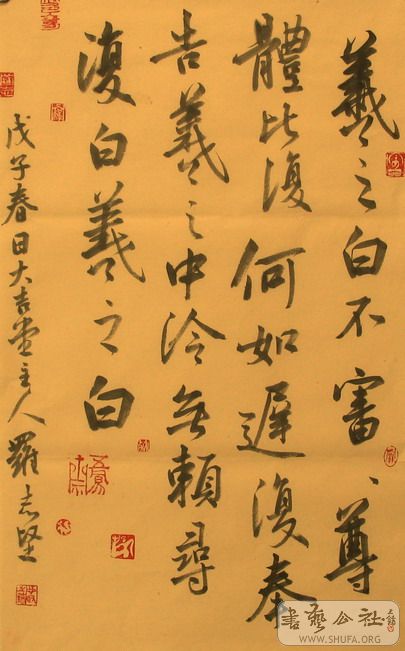 羲之白不審尊
體比復何如遲復奉
告羲之中冷無賴尋
復白羲之白
戊子春日大吉堂主人羅志堅
書藝公社
WWW.SHUFA.ORG